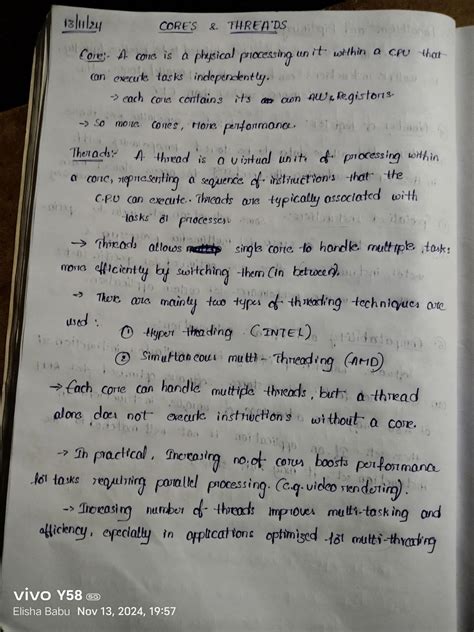 13/11/24
CORE'S & THREADS
Core:- A core is a physical processing unit within a CPU that
can execute tasks independently.
→ each core contains it's own ALU & Registors
→ So more cores, More performance.
Therads:- A thread is a virtual units of processing within
a core, representing a sequence of instruction's that the
C.P.U can execute. Threads are typically associated with
tasks or processes.
→ Threads allows single core to handle multiple tasks
more efficiently by switching them (in between).
→ There are mainly two types of threading techniques are
used:
① Hyper theading (INTEL)
② Simultaneous multi-Threading (AMD)
→ Each core can handle multiple threads, but a thread
alone does not execute instructions without a core.
→ In practical, Increasing no. of cores boosts performance
for tasks requiring parallel processing. (e.g. video rendering).
→ Increasing number of threads improves multi-tasking and
efficiency, especially in applications optimized for multi-threading
vivo Y58 5G
Elisha Babu Nov 13, 2024, 19:57